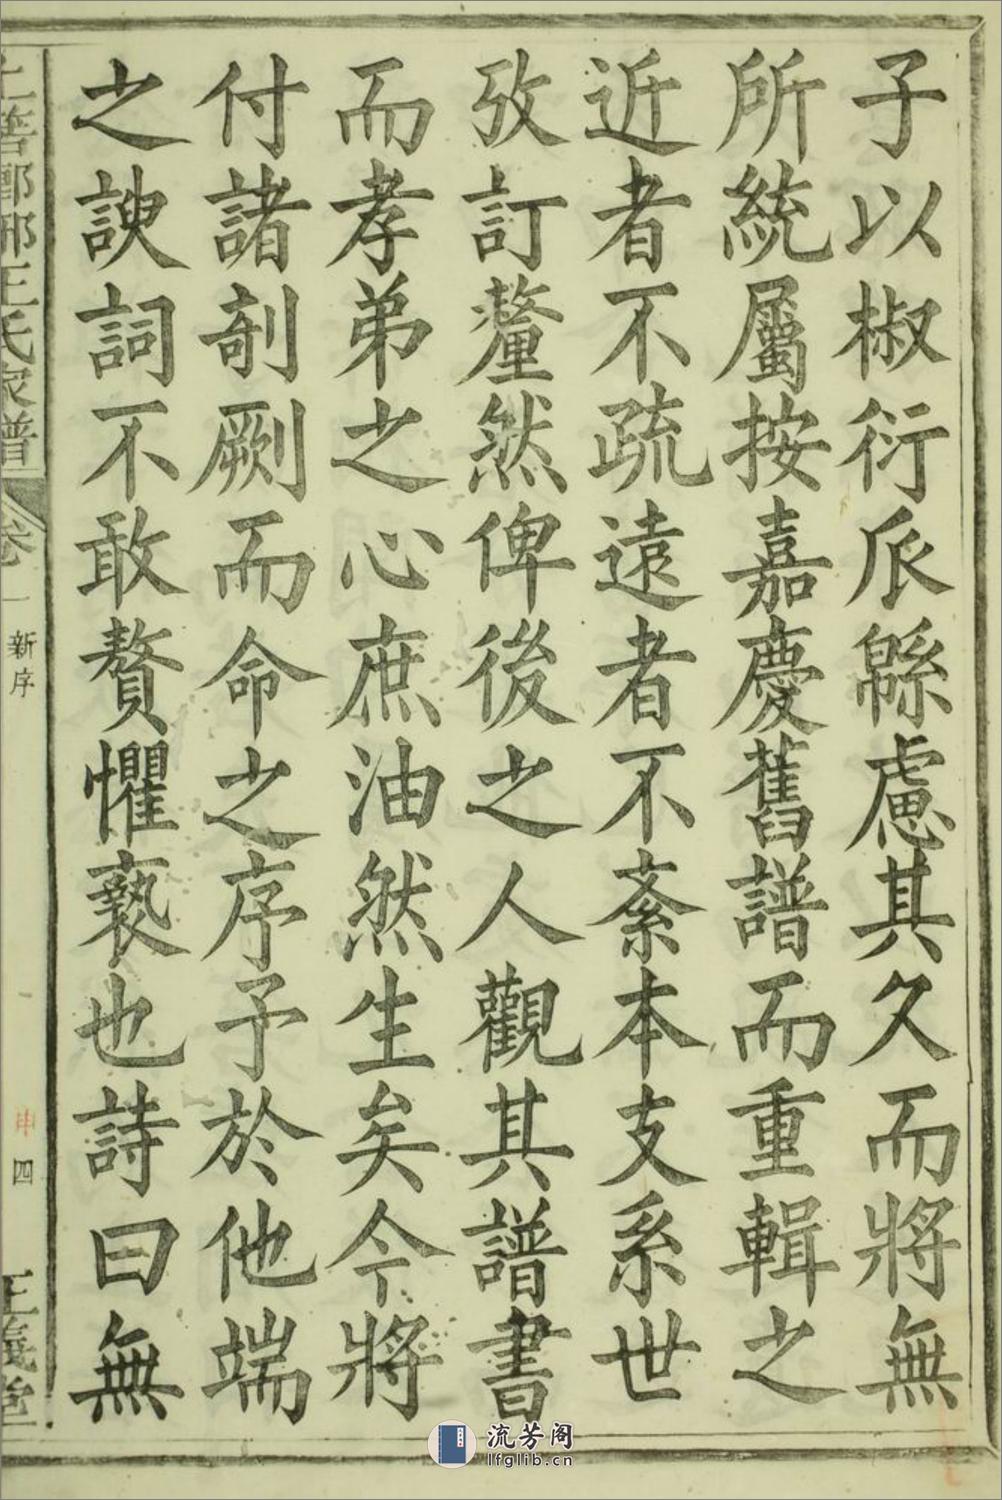 子以椒衍𠂢緜慮其久而將無
所統屬按嘉慶舊譜而重輯之
近者不疏遠者不紊本支系世
攷訂釐然俾後之人觀其譜書
而孝弟之心庶油然生矣今將
付諸剞劂而命之序予於他端
之諛詞不敢贅懼褻也詩曰無
王氏家譜
卷一
新序
四
流芳阁
lfglib.cn